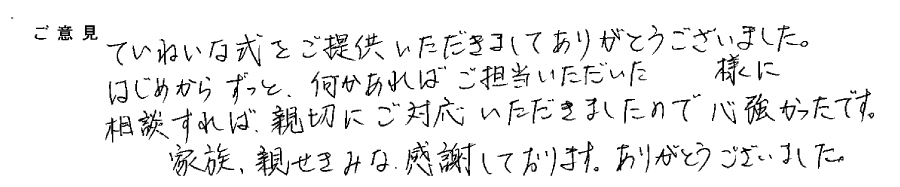 ご意見
ていねいな式をご提供いただきましてありがとうございました。
はじめからずっと、何かあればご担当いただいた 様に
相談すれば、親切にご対応いただきましたので心強かったです。
家族、親せきみな、感謝しております。ありがとうございました。